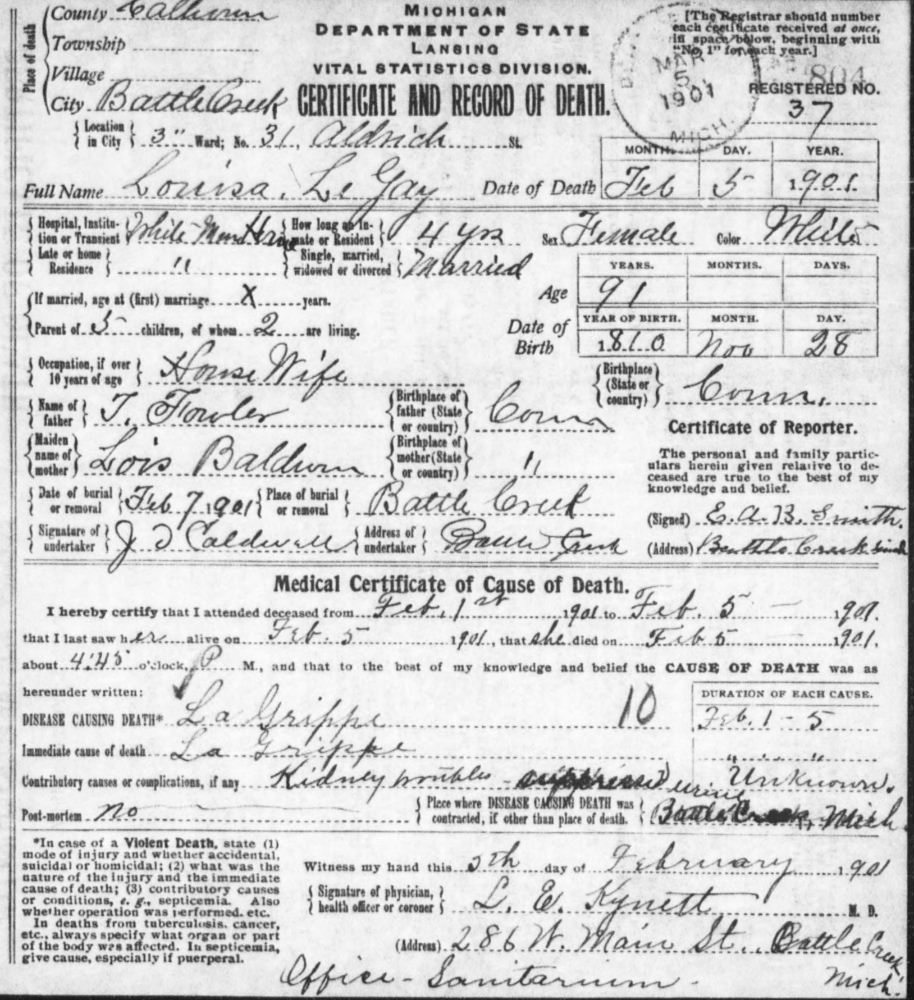 Place of death
County Calhoun
Township
Village
City Battle Creek
MICHIGAN
DEPARTMENT OF STATE
LANSING
VITAL STATISTICS DIVISION.
CERTIFICATE AND RECORD OF DEATH.
[The Registrar should number
each certificate received at once,
in space below, beginning with
"No. 1" for each year.]
MAR
5
1901
MICH.
804
REGISTERED NO.
37
Location in City 3" Ward; No. 31, Aldrich St.
MONTH. DAY. YEAR.
Full Name Louisa. Le Gay Date of Death Feb 5 1901.
Hospital, Institution or Transient White Mem Home How long an Inmate or Resident 4 yrs Sex Female Color White
Late or home Residence " Single, married, widowed or divorced Married
YEARS. MONTHS. DAYS.
If married, age at (first) marriage X years. Age 91
Parent of 5 children, of whom 2 are living.
YEAR OF BIRTH. MONTH. DAY.
Date of Birth 1810 Nov 28
Occupation, if over 10 years of age House Wife Birthplace (State or country) Conn.
Name of father T. Fowler Birthplace of father (State or country) Conn
Maiden name of mother Lois Baldwin Birthplace of mother (State or country) "
Certificate of Reporter.
The personal and family partic-
ulars herein given relative to de-
ceased are true to the best of my
knowledge and belief.
Date of burial or removal Feb 7 1901 Place of burial or removal Battle Creek
(Signed) E. A. B. Smith.
Signature of undertaker J D Caldwell Address of undertaker Battle Creek
(Address) Battle Creek Mich
Medical Certificate of Cause of Death.
I hereby certify that I attended deceased from Feb. 1st 1901 to Feb. 5 1901.
that I last saw her alive on Feb. 5 1901, that she died on Feb 5 1901.
about 4:45 o'clock, P. M., and that to the best of my knowledge and belief the CAUSE OF DEATH was as
hereunder written:
DURATION OF EACH CAUSE.
DISEASE CAUSING DEATH* La Grippe 10 Feb. 1 - 5
Immediate cause of death La Grippe " "
Contributory causes or complications, if any Kidney troubles - suppressed urine Unknown.
Post-mortem no Place where DISEASE CAUSING DEATH was contracted, if other than place of death. Battle Creek, Mich.
*In case of a Violent Death, state (1)
mode of injury and whether accidental,
suicidal or homicidal; (2) what was the
nature of the injury and the immediate
cause of death; (3) contributory causes
or conditions, e. g., septicemia. Also
whether operation was performed. etc.
In deaths from tuberculosis, cancer,
etc., always specify what organ or part
of the body was affected. In septicemia,
give cause, especially if puerperal.
Witness my hand this 5th day of February 1901
Signature of physician, health officer or coroner L. E. M. D.
(Address) 286 W. Main St. Battle Creek
Mich.
Office - Sanitarium.